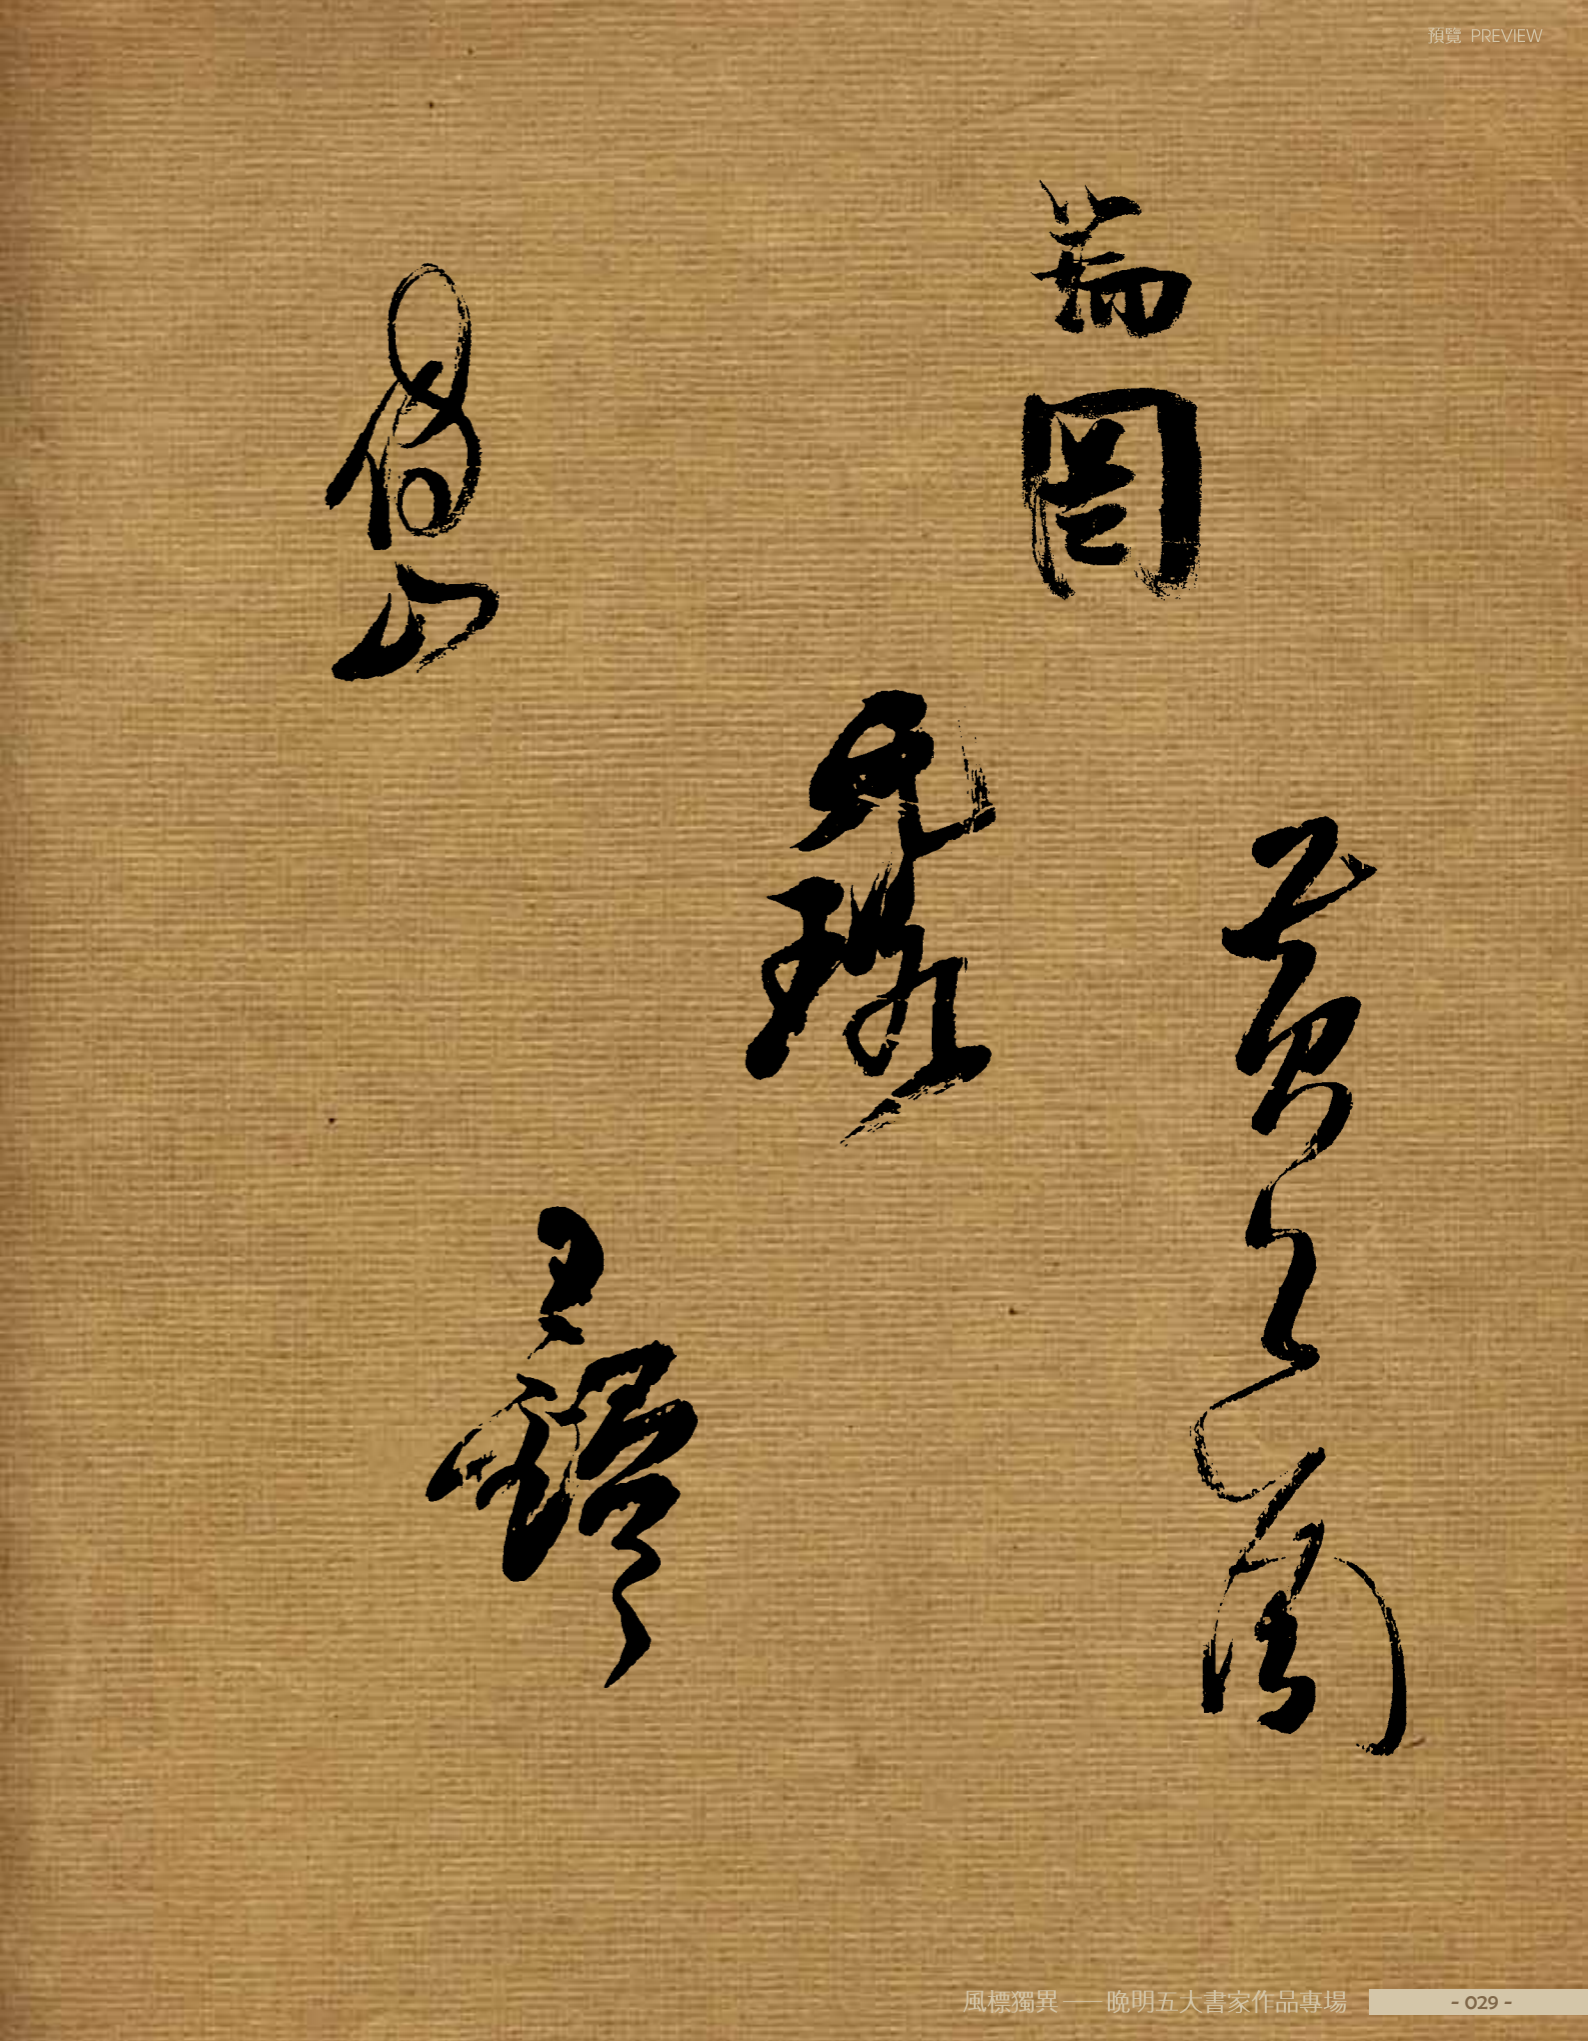 預覽 PREVIEW
瑞圖
黃道周
元璐
王鐸
傅山
風標獨異——晚明五大書家作品專場
- 029 -